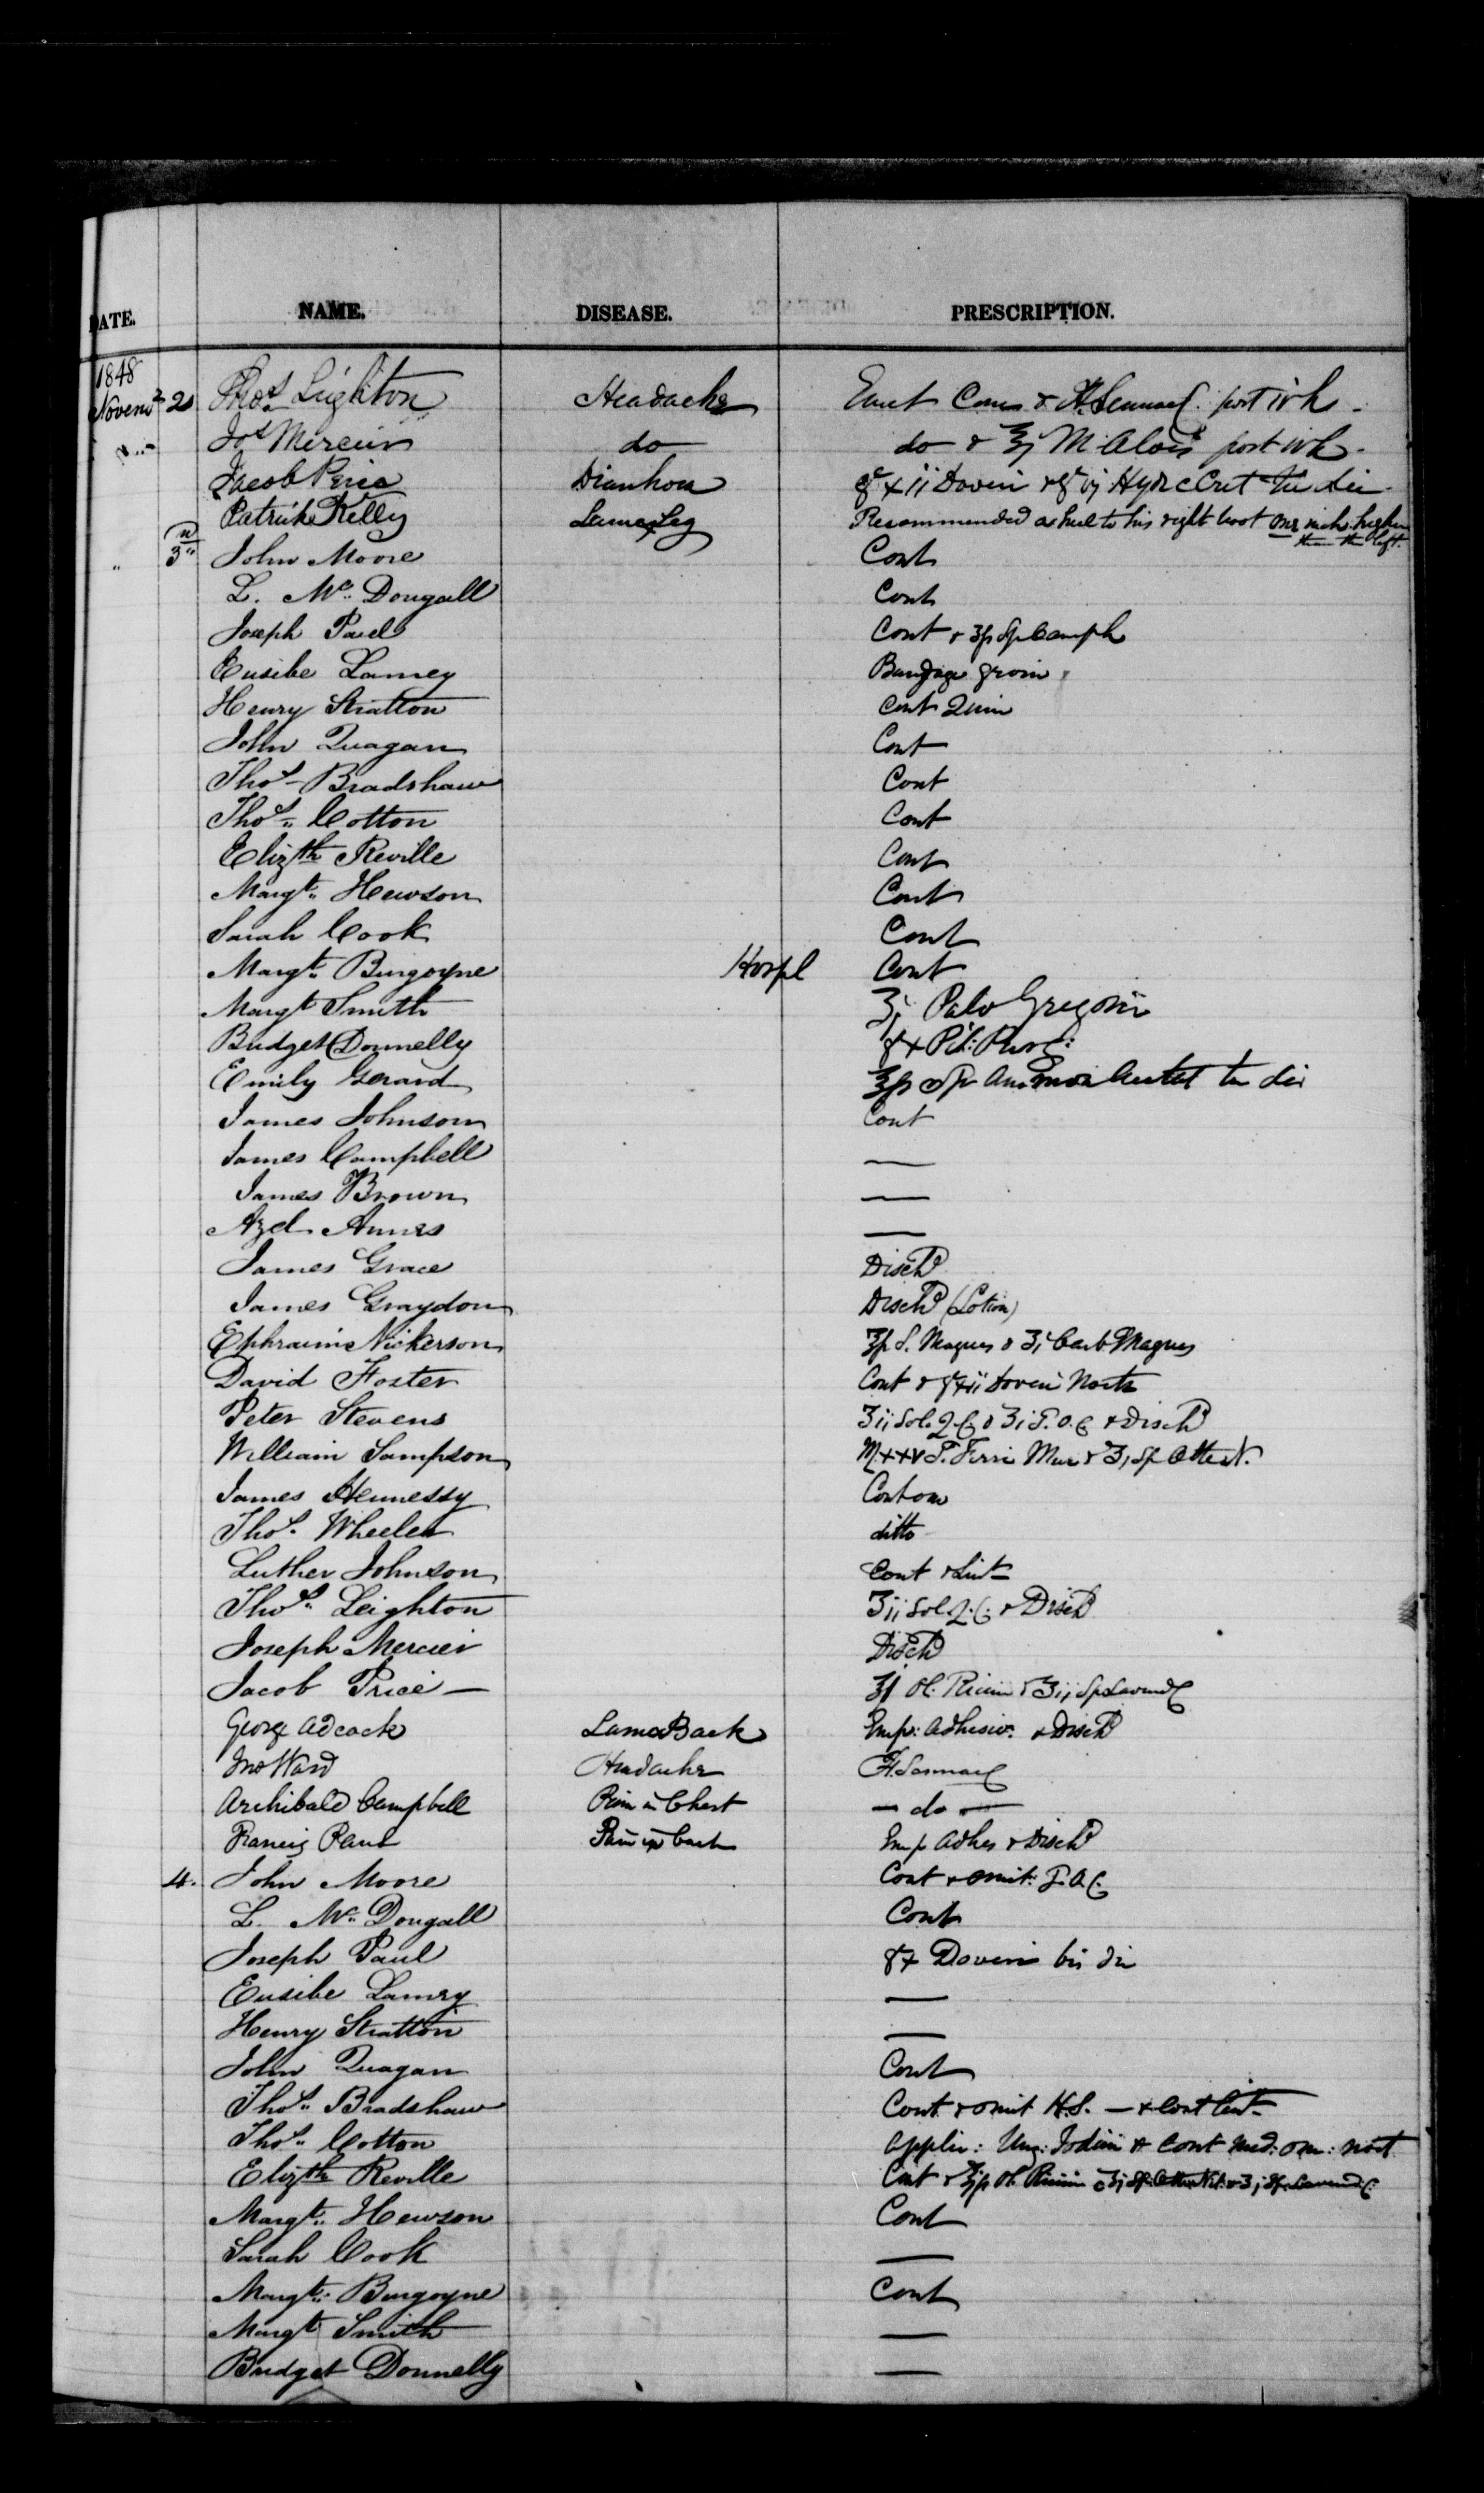 DATE. NAME. DISEASE. PRESCRIPTION.
1848
Novemr 2d Thos Lighton Headache Cont Cones & H. Sennae C. post iv h.
Jos Mercier do do & ʒj M. Aloes post iv h.
Jacob Price Diarrhoea gr xii Doveri & gr vj Hyd c Cret ter die
Patrick Kelly Lame Leg Recommended a heel to his right boot one inch higher
than the left.
" 3d John Moore Cont
L. Mc Dougall Cont
Joseph Paul Cont & ʒſs Sp Camph
Eusibe Lamey Bandage groin
Henry Stratton Cont Quin
John Quagan Cont
Thos Bradshaw Cont
Thos Cotton Cont
Elizth Reville Cont
Margt Hewson Cont
Sarah Cook Cont
Margt Burgoyne Hospl Cont
Margt Smith ʒj Pulv Gregorii
Bridget Donnelly gr x Pil: Purg:
Emily Gerard ʒſs Sp Ammon ter die
James Johnson Cont
James Campbell —
James Brown —
Azel Annes —
James Grace Dischd
James Graydon Dischd (Lotion)
Ephraim Nickerson ℥ſs S. Magnes & ʒi Carb Magnes
David Foster Cont & gr xii Doveri Nocte
Peter Stevens ʒii Sol. Q. C. & ʒi T. O. C & Dischd
William Sampson M xxv T. Ferri Mur & ʒi Sp Ether N.
James Hennessy Cont om
Thos Wheeler ditto
Luther Johnson Cont & Lint
Thos Leighton ʒii Sol. Q. C. & Dischd
Joseph Mercier Dischd
Jacob Price — ℥j Ol. Ricini & ʒii Sp Lavend C
George Adcock Lame Back Emp: Adhesiv. & Dischd
Jno Ward Headache H. Sennae C
Archibald Campbell Pain in Chest — do —
Francis Paul Pain in back Emp Adhes & Dischd
4. John Moore Cont & omit: T. O. C.
L. Mc Dougall Cont
Joseph Paul gr x Doveri bis die
Eusibe Lamey —
Henry Stratton —
John Quagan Cont
Thos Bradshaw Cont & omit H.S. — & Cont Cent
Thos Cotton Applic: Ung: Iodini & Cont Med: om: noct
Elizth Reville Cont & ℥ſs Ol. Ricini c ʒj Sp: Ether Nit. & ʒj Sp. Lavend C.
Margt Hewson Cont
Sarah Cook —
Margt Burgoyne Cont
Margt Smith —
Bridget Donnelly —